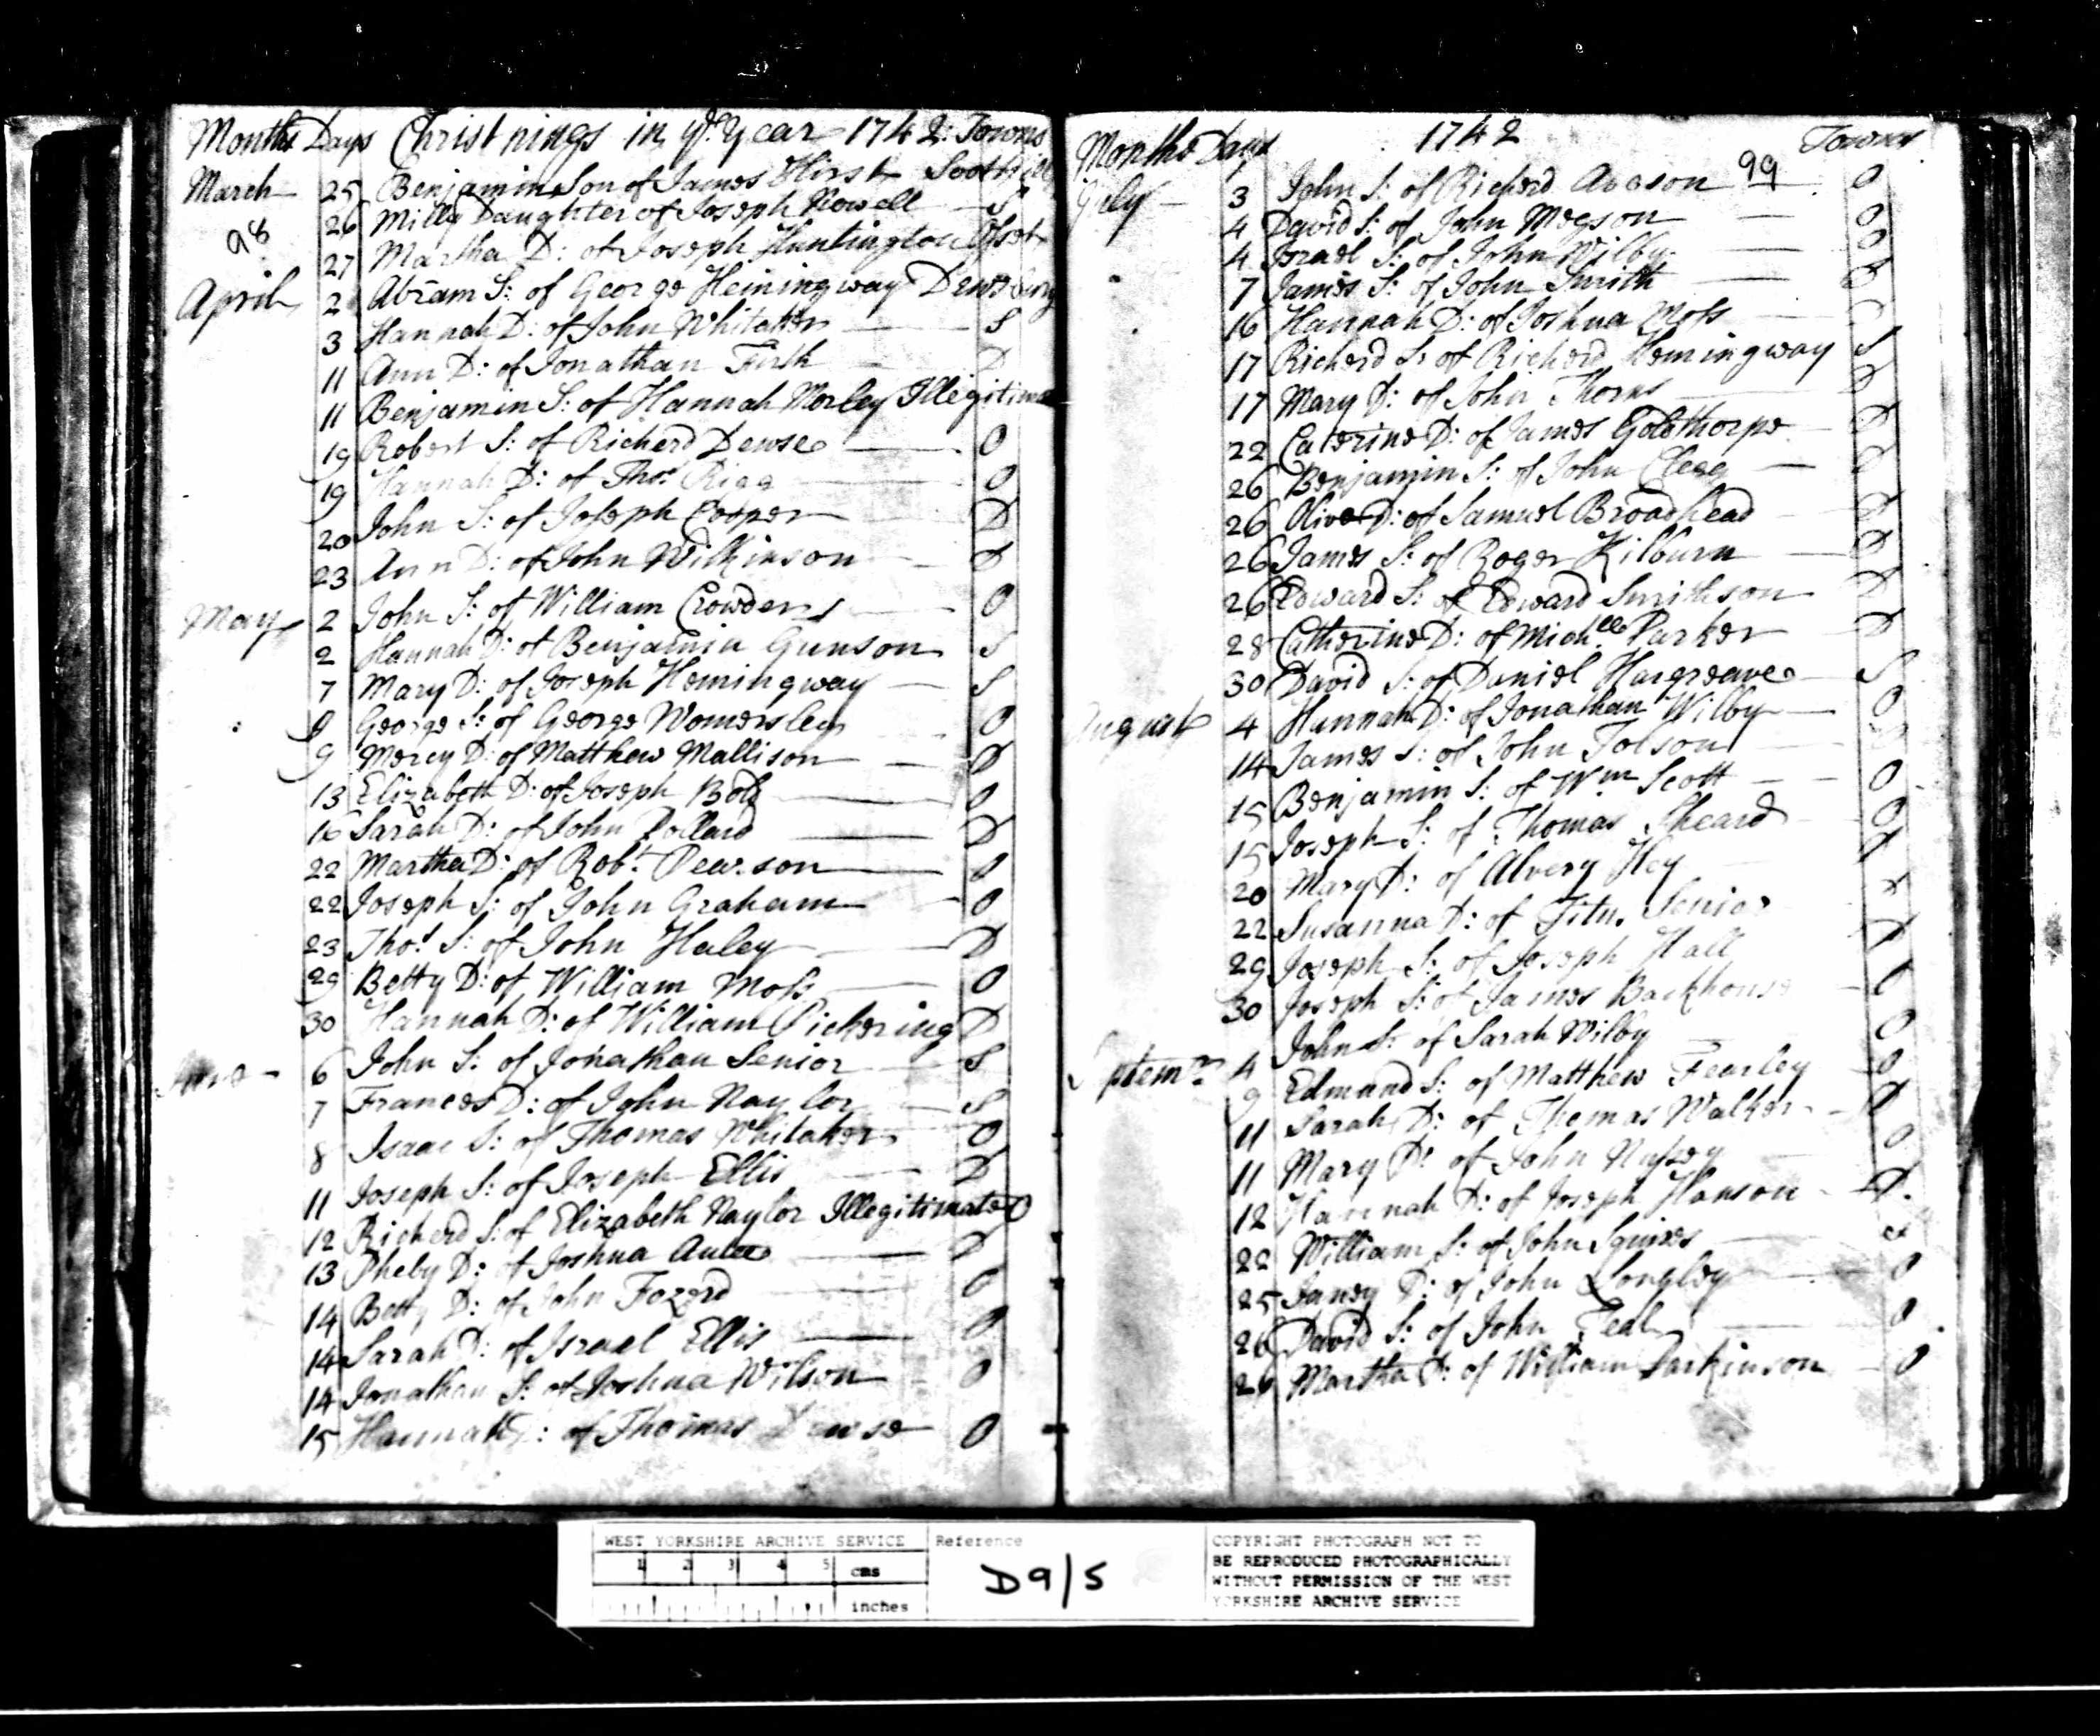 Months Days Christnings in ye Year 1742: Towns
March 25 Benjamin Son of James Hirst Soothill
98
26 Milly Daughter of Joseph Nowell S
27 Martha D: of Joseph Huntington Osset
April 2 Abram S: of George Hemingway Dewsbury
3 Hannah D: of John Whitaker S
11 Ann D: of Jonathan Firth D
11 Benjamin S: of Hannah Morley Illegitima
19 Robert S: of Richerd Dewse O
19 Hannah D: of Thos. Rigg O
20 John S: of Joseph Cooper D
23 Ann D: of John Wilkinson D
May 2 John S: of William Crowder O
2 Hannah D: of Benjamin Gunson S
7 Mary D: of Joseph Hemingway S
9 George S: of George Womersley O
9 Mercy D: of Matthew Mallison D
13 Elizabeth D: of Joseph O
16 Sarah D: of John Pollard D
22 Martha D: of Robt. Pearson O
22 Joseph S: of John Graham O
23 Thos. S: of John Haley D
29 Betty D: of William Moss O
30 Hannah D: of William Pickering D
June 6 John S: of Jonathan Senior S
7 Frances D: of John Naylor S
8 Isaac S: of Thomas Whitaker O
11 Joseph S: of Joseph Ellis D
12 Richerd S: of Elizabeth Naylor Illegitimate O
13 Pheby D: of Joshua D
14 Betty D: of John Fozerd O
14 Sarah D: of Israel Ellis O
14 Jonathan S: of Joshua Wilson O
15 Hannah D: of Thomas Dewse O
Months Days 1742 Towns
99
July 3 John S: of Richerd Aveson O
4 David S: of John Megson O
4 Israel S: of John Wilby O
7 James S: of John Smith
16 Hannah D: of Joshua Moss
17 Richerd S: of Richerd Hemingway S
17 Mary D: of John Thorns D
22 Caterine D: of James Goldthorpe D
26 Benjamin S: of John Clegg D
26 Olive D: of Samuel Broadhead D
26 James S: of Roger Kilburn D
26 Edward S: of Edward Smithson D
28 Catherine D: of Michll. Parker D
30 David S: of Daniel Hargreave S
August 4 Hannah D: of Jonathan Wilby O
14 James S: of John Tolson
15 Benjamin S: of Wm Scott O
15 Joseph S: of Thomas Sheard O
20 Mary D: of Alvery Hey D
22 Susanna D: of Titus Senior
29 Joseph S: of Joseph Hall D
30 Joseph S: of James Backhouse O
John S: of Sarah Wilby O
Septemr 4 Edmund S: of Matthew Fearley O
9 Sarah D: of Thomas Walker D
11 Mary D: of John Nussey O
11 Hannah D: of Joseph Hanson D
12 William S: of John Squires
22 Janey D: of John Longley O
25 David S: of John Teal O
26 Martha D: of William Parkinson O
26
WEST YORKSHIRE ARCHIVE SERVICE
1 2 3 4 5 cms
inches
Reference
D9/5
COPYRIGHT PHOTOGRAPH NOT TO
BE REPRODUCED PHOTOGRAPHICALLY
WITHOUT PERMISSION OF THE WEST
YORKSHIRE ARCHIVE SERVICE